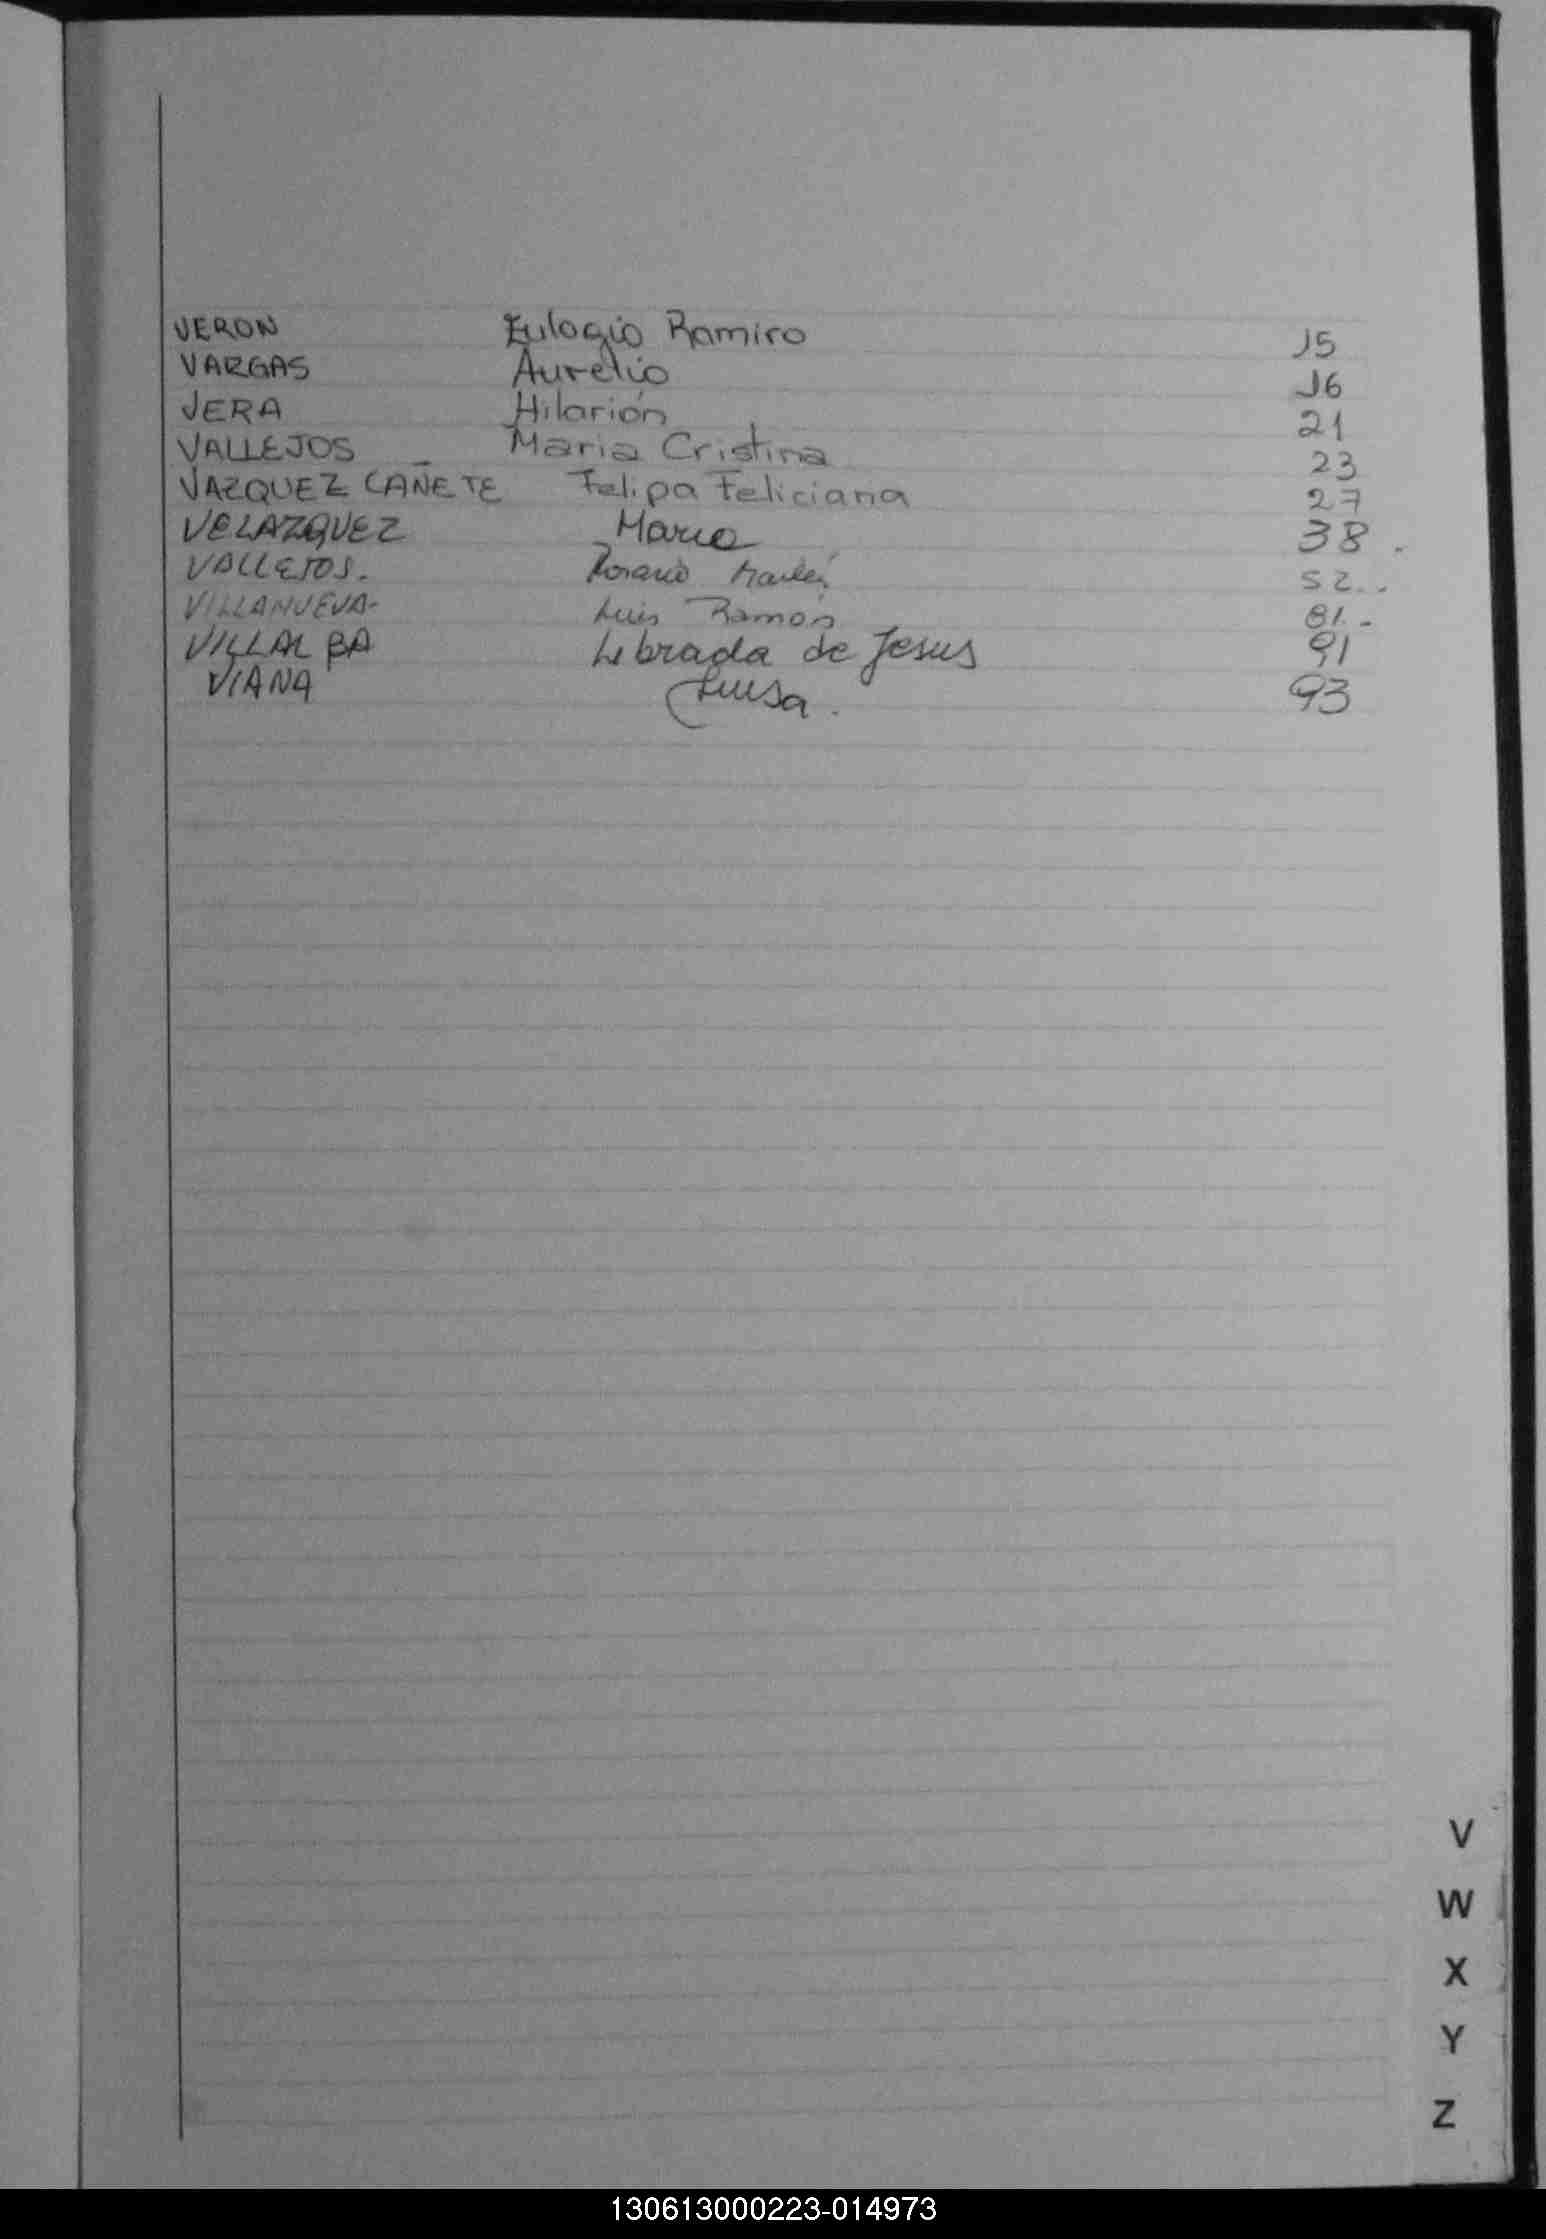 VERON Eulogio Ramiro 15
VARGAS Aurelio 16
VERA Hilarión 21
VALLEJOS Maria Cristina 23
VAZQUEZ CAÑETE Felipa Feliciana 27
VELAZQUEZ Maria 38.
VALLEJOS. Rosario 52..
VILLANUEVA- Luis Ramón 81.-
VILLALBA Librada de Jesus 91
VIANA Luisa. 93
V
W
X
Y
Z
130613000223-014973